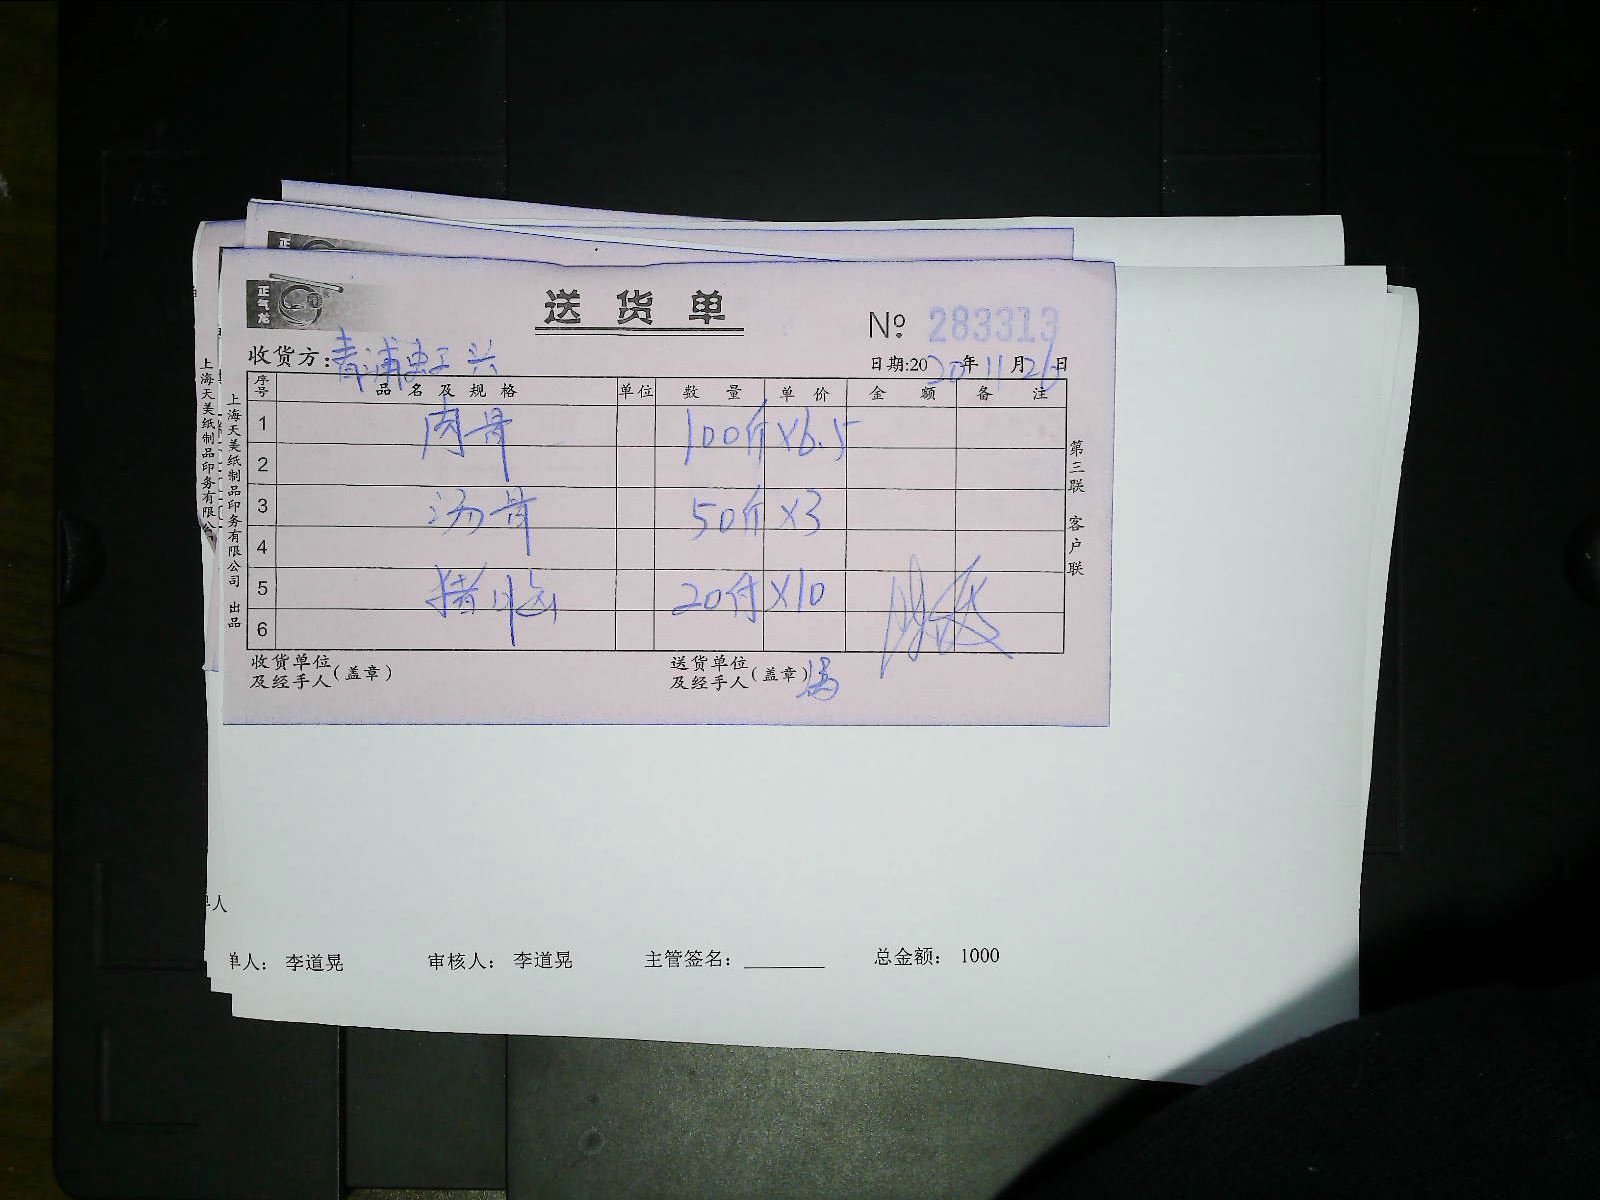 正气龙
送货单
№ 283313
收货方:青浦
日期:2020年11月26日
序号 品名及规格 单位 数量 单价 金额 备注
1 肉骨 100斤 ×6.5
2
3 汤骨 50斤 ×3
4
5 猪脑 20付 ×10
6
收货单位及经手人(盖章)
送货单位及经手人(盖章)
第三联 客户联
上海天美纸制品印务有限公司 出品
上海天美纸制品印务有限公
单人
单人: 李道晃 审核人: 李道晃 主管签名: 总金额: 1000